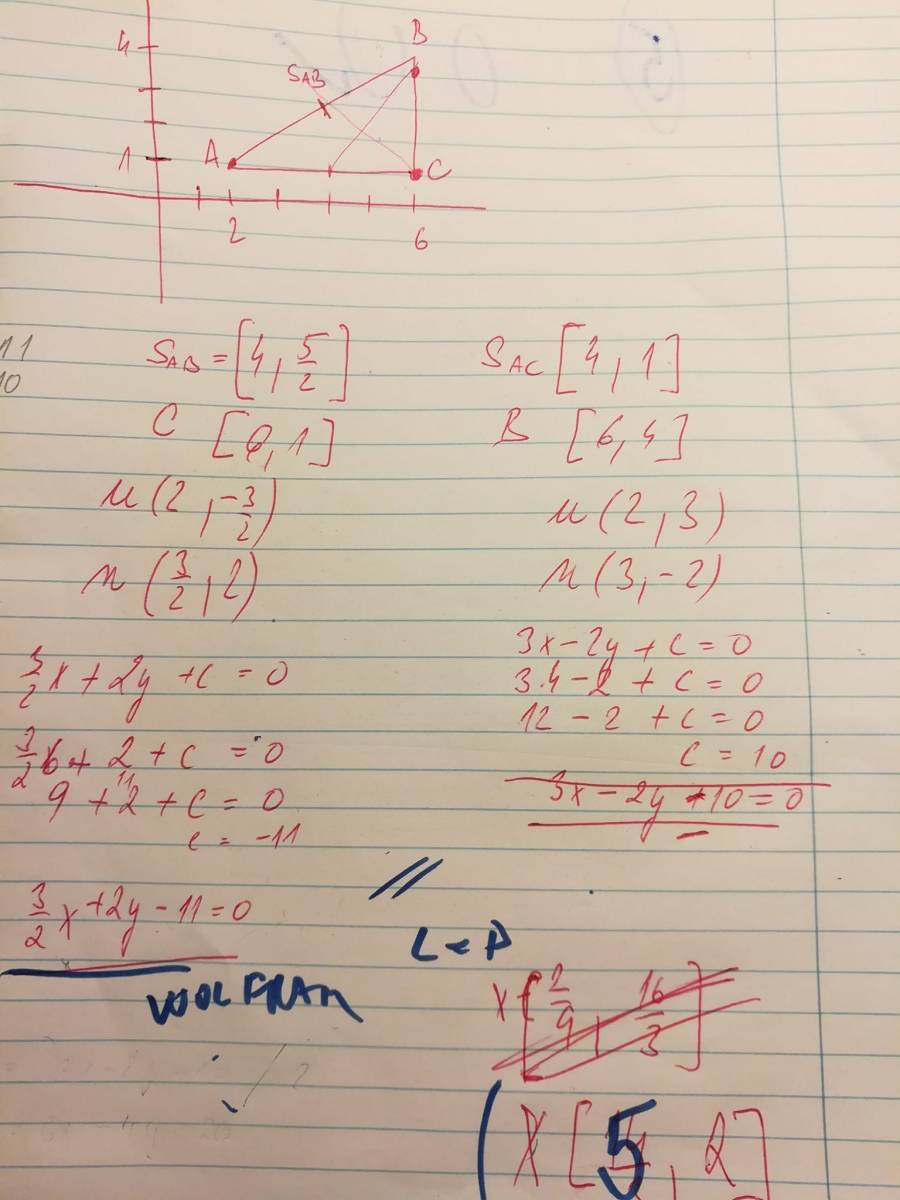 4
B
SAB
1
A
C
2
6
11
10
SAB = [4, 5/2]
SAC [4, 1]
C [6, 1]
B [6, 4]
u (2, -3/2)
u (2, 3)
n (3/2, 2)
n (3, -2)
3/2 x + 2y + c = 0
3x - 2y + c = 0
3.4 - 2 + c = 0
12 - 2 + c = 0
3/2 6 + 2 + c = 0
c = 10
9 + 2 + c = 0
11
3x - 2y - 10 = 0
c = -11
3/2 x + 2y - 11 = 0
L = P
WOLFRAM
X [2/9, 16/3]
X [5, 2]